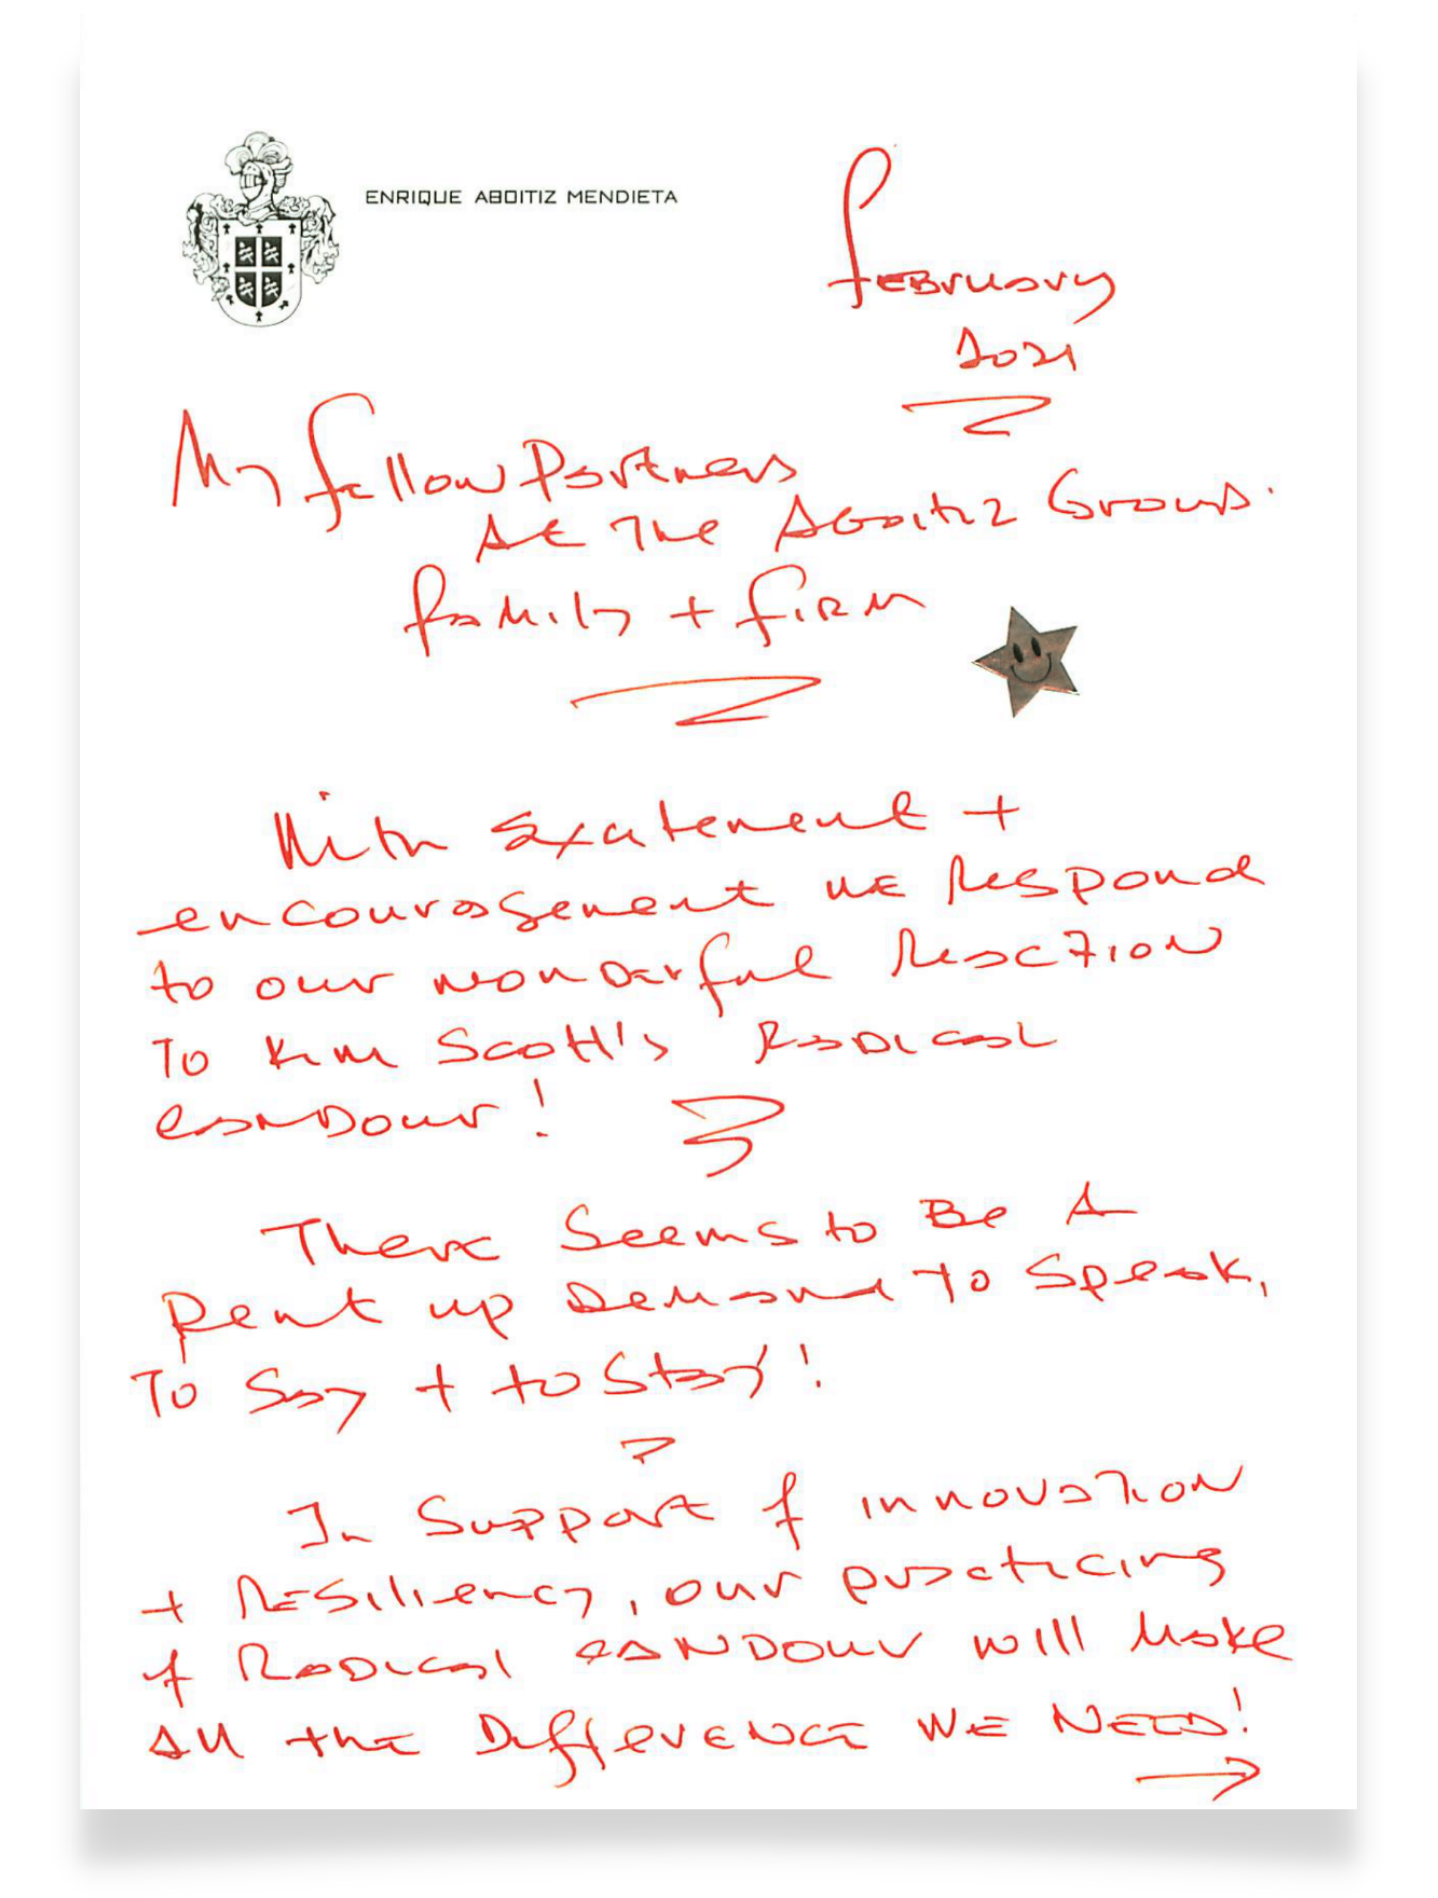 ENRIQUE ABOITIZ MENDIETA
February
2021
My fellow Partners
At The Aboitiz Group.
family + firm
With Excitement +
encouragement we Respond
to our wonderful Reaction
To Kim Scott's Radical
Candour!
There Seems to Be A
Pent up Demand To Speak,
To Say + to Stay!
In Support of innovation
+ Resiliency, our practicing
of Radical CANDOUR will Make
All the DiffeRENCE WE NEED!